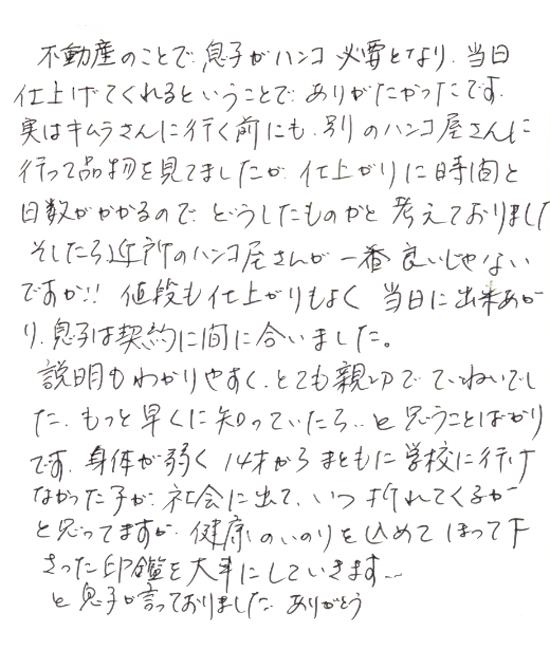 不動産のことで、息子がハンコ必要となり、当日
仕上げてくれるということで、ありがたかったです。
実はキムラさんに行く前にも、別のハンコ屋さんに
行って品物を見てましたが、仕上がりに時間と
日数がかかるので、どうしたものかと考えておりました
そしたら近所のハンコ屋さんが一番良いじゃない
ですか!! 値段も仕上がりもよく 当日に出来あが
り、息子は契約に間に合いました。
説明もわかりやすく、とても親切でていねいでし
た、もっと早くに知っていたら、、と思うことばかり
です、身体が弱く 14才からまともに学校に行け
なかった子が、社会に出て、いつ折れてくるか
と思ってますが、健康のいのりを込めてほって下
さった印鑑を大事にしていきます…
と息子が言っておりました、ありがとう